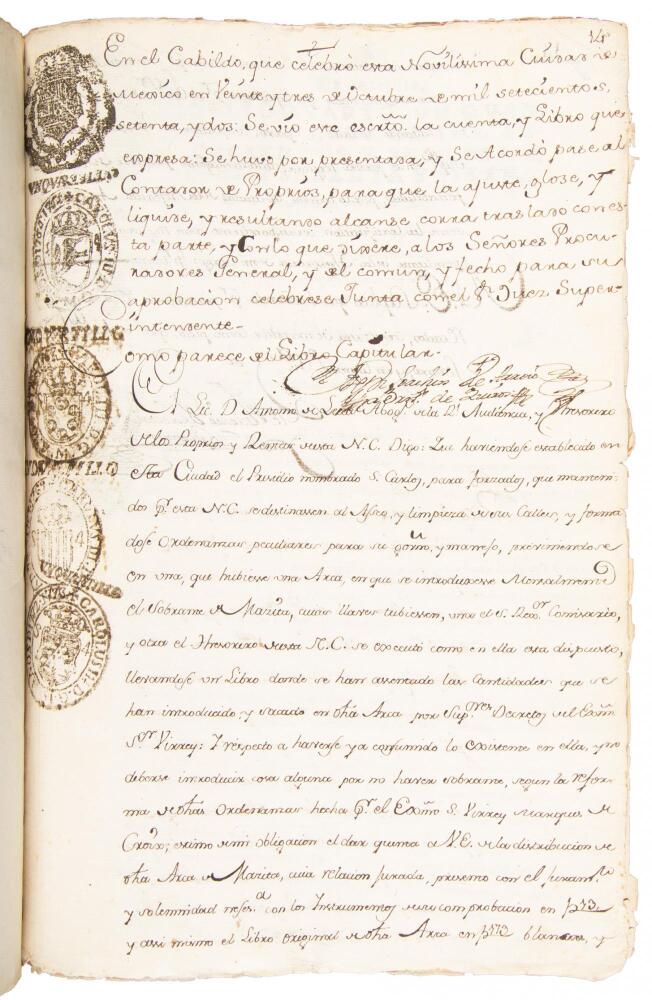 14
En el Cabildo, que celebrò esta Novilissima Ciudad de
Mexico en Veinte y tres de Octubre de mil setecientos
setenta, y dos: Se vio este escrito la cuenta, y Libro que
expresa: Se huvo por presentada, y Se Acordò pase al
Contador de Proprios, para que la ajuste, glose, y
liquide, y resultando alcanse corra traslado con es-
ta parte, y con lo que dixere, a los Señores Procu-
radores General, y del comun, y fecho para su
aprobacion celebrese Junta con el Sr. Juez Super-
intendente-
Como parece del Libro Capitular-
El Lic. D. Antonio de Abog. de la Rl. Audiencia, y Thesorero
de los Proprios y Rentas de esta N. C. Digo: Que haviendose establecido en
esta Ciudad el Presidio nombrado S. Carlos, para forzados, que manteni-
dos pr. esta N. C. se destinassen al Asseo, y limpieza de sus Calles, y forma
dose Ordenanzas peculiares para su govno, y manejo, previniendose
en una, que hubiesse una Arca, en que se introduxesse Mensalmente
el Sobrante de Marita, cuias llaves tubiessen, una el S. Rexor. Comisario,
y otra el Thesorero de esta N. C. se executó como en ella está dispuesto,
llevandose un Libro donde se han assentado las Cantidades que se
han introducido, y sacado en dha Arca por Supres. Decretos del Exmo
Sor. Virrey: Y respecto a haverse ya consumido lo existente en ella, y no
deberse introducir cosa alguna por no haver sobrante, segun la refor-
ma de dhas Ordenanzas hecha pr. el Exmo S. Virrey Marques de
Croix; exímo de mi obligacion el dar quenta a V. E. de la distribucion de
dha Arca de Marita, cuia relacion jurada, presento con el juramto
y solemnidad nesesa. con los Instrumentos de su comprobacion en
y assi mismo el Libro original de dha Arca en blancas, y